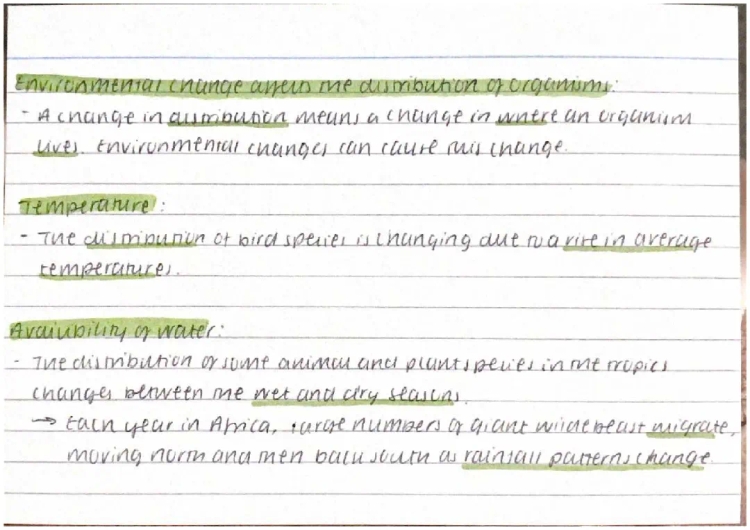 Environmental change affects the distribution of organisms:
- A change in distribution means a change in where an organism
lives. Environmental changes can cause this change.
Temperature:
- The distribution of bird species is changing due to a rise in average
temperatures.
Availibility of water:
- The distribution of some animal and plant species in the tropics
changes between the wet and dry seasons.
→ Each year in Africa, large numbers of giant wildebeast migrate,
moving north and then back south as rainfall patterns change